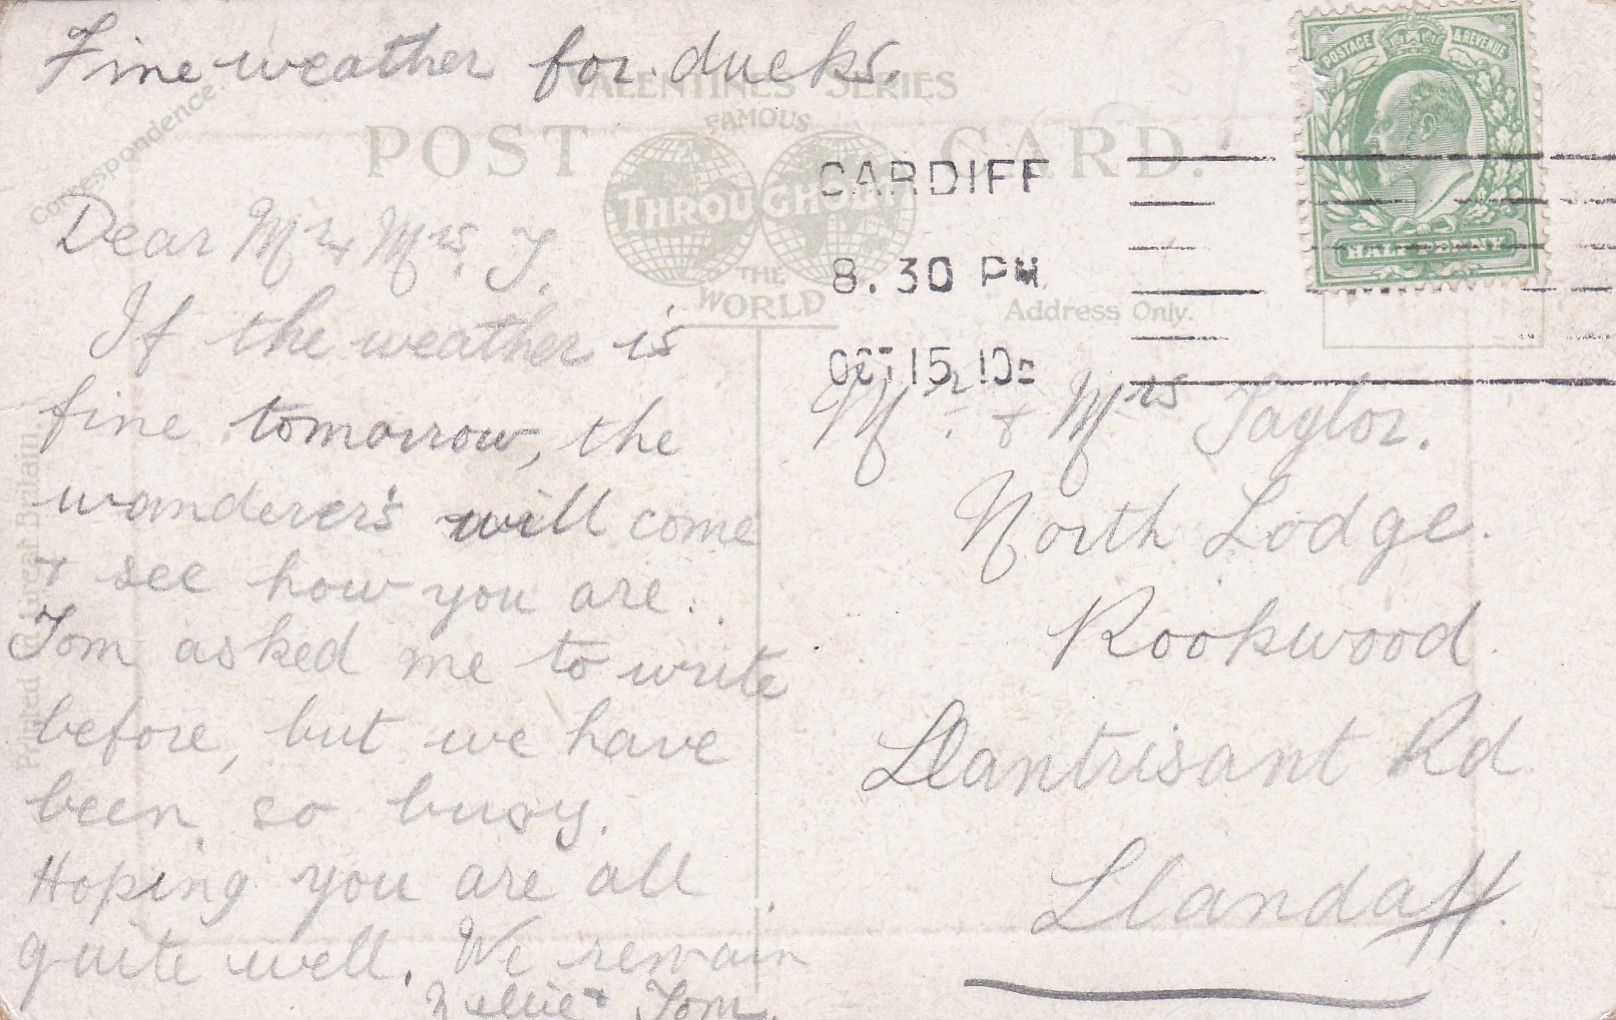 Fine weather for ducks.
Correspondence
VALENTINES SERIES
FAMOUS
POST CARD.
THROUGHOUT
THE
WORLD
POSTAGE & REVENUE
HALFPENNY
CARDIFF
8.30 PM
OCT 15 10
Address Only.
Dear Mr & Mrs. T.
If the weather is
fine tomorrow, the
wanderer's will come
& see how you are.
Tom asked me to write
before, but we have
been so busy.
Hoping you are all
quite well. We remain
Nellie & Tom.
Mr. & Mrs Taylor.
North Lodge.
Rookwood.
Llantrisant Rd
Llandaff.
Printed in Great Britain.